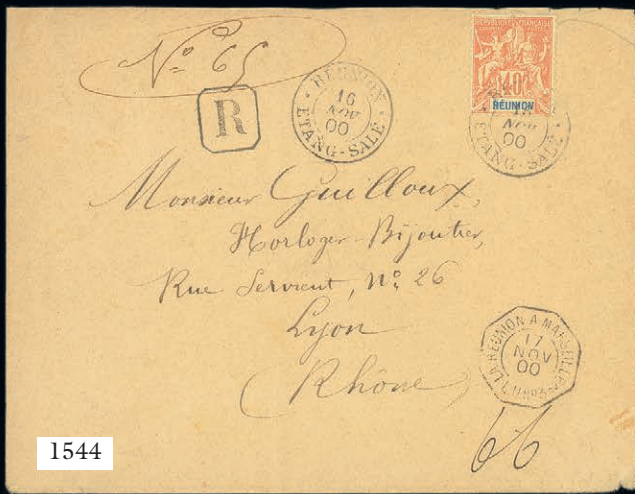 N° 65
R
RÉUNION
16
NOV
00
ETANG-SALÉ
RÉPUBLIQUE FRANÇAISE
40
RÉUNION
16
NOV
00
ETANG-SALÉ
Monsieur Guilloux,
Horloger-Bijoutier,
Rue Servient, N° 26
Lyon
Rhône
LA RÉUNION A MARSEILLE
17
NOV
00
66
1544